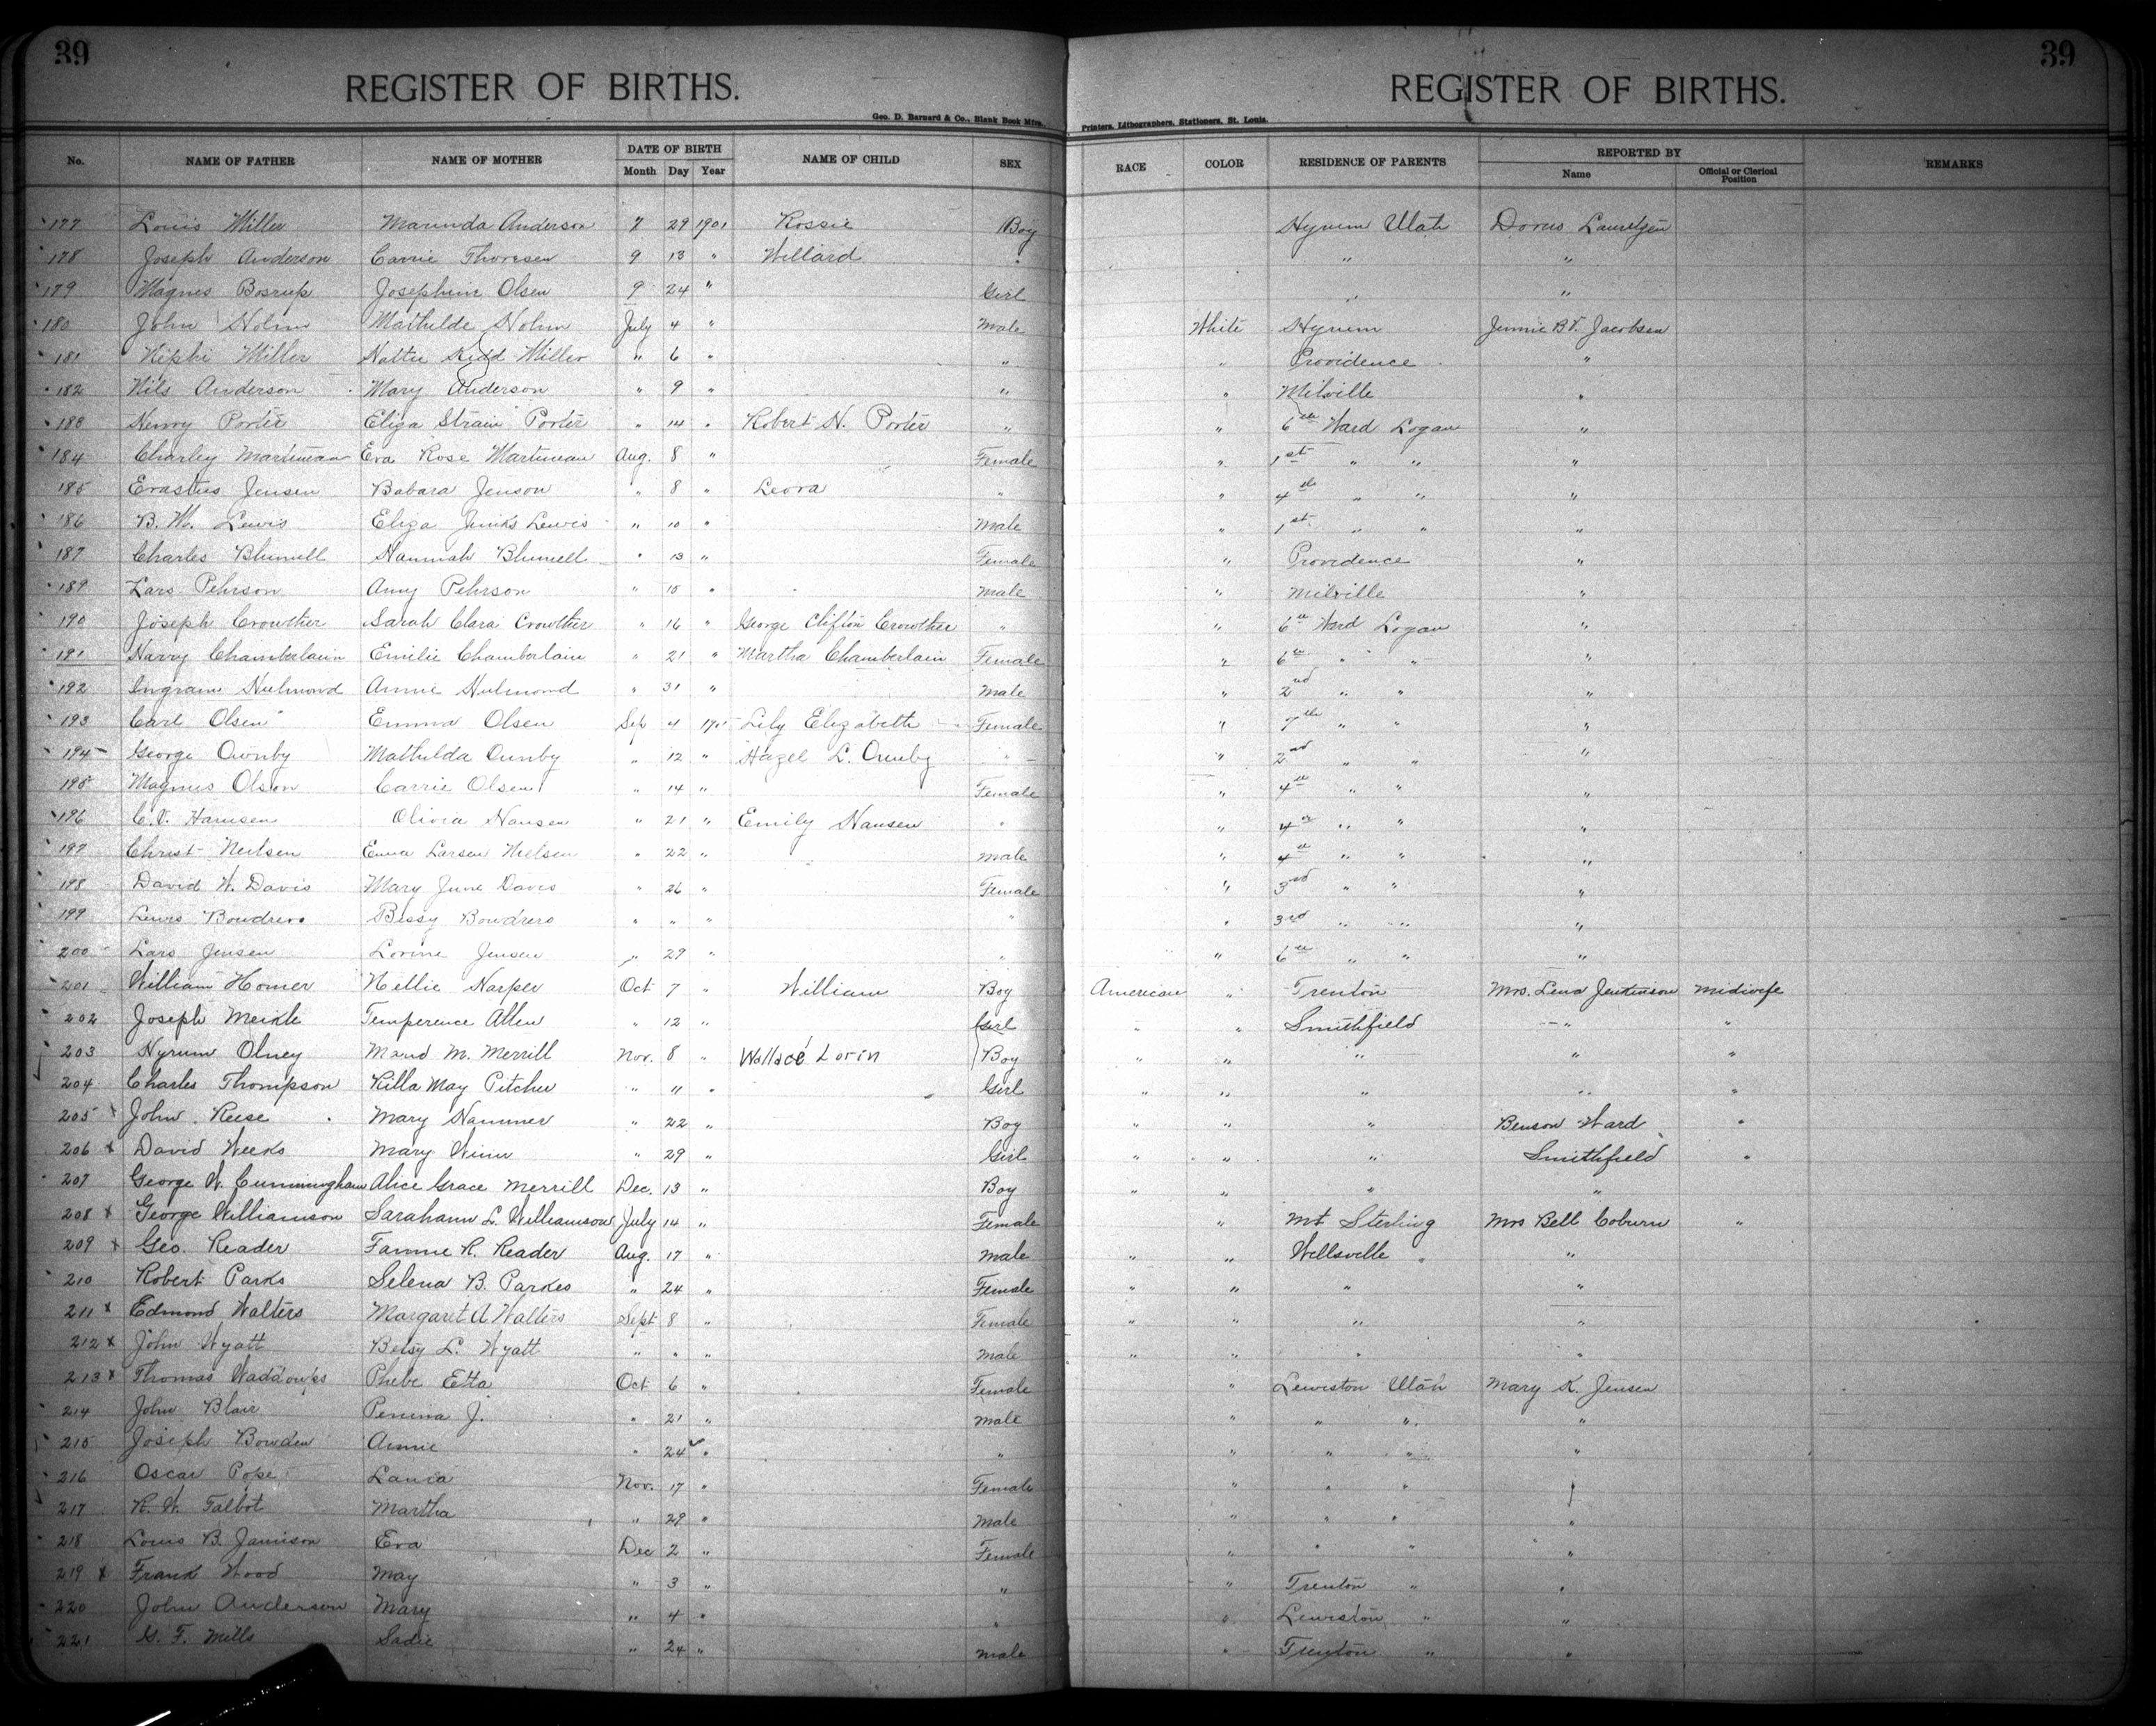 39 39
REGISTER OF BIRTHS. REGISTER OF BIRTHS.
Geo. D. Barnard & Co., Blank Book Mfrs. Printers, Lithographers, Stationers, St. Louis.
No. NAME OF FATHER NAME OF MOTHER DATE OF BIRTH Month Day Year NAME OF CHILD SEX RACE COLOR RESIDENCE OF PARENTS REPORTED BY Name Official or Clerical Position REMARKS
177 Louis Miller Marinda Anderson 7 29 1901 Rossie Boy Hyrum Utah Dorus Lauretzen
178 Joseph Anderson Carrie Thoresen 9 13 " Willard " " "
179 Magnus Bosrup Josephine Olsen 9 24 " Girl " "
180 John Holm Mathilde Holm July 4 " Male White Hyrum Jennie B. Jacobsen
181 Niphi Miller Hattie Kidd Miller " 6 " " " Providence "
182 Nils Anderson Mary Anderson " 9 " " " Milville "
183 Henry Porter Eliza Strain Porter " 14 " Robert H. Porter " " 6th Ward Logan "
184 Charley Martineau Eva Rose Martineau Aug. 8 " Female " 1st " " "
185 Erastus Jensen Babara Jenson " 8 " Leora " " 4th " " "
186 B. M. Lewis Eliza Jinks Lewis " 10 " Male " 1st " " "
187 Charles Blumell Hannah Blumell " 13 " Female " Providence "
189 Lars Pehrson Amy Pehrson " 15 " Male " Milville "
190 Joseph Crowther Sarah Clara Crowther " 16 " George Clifton Crowther " " 6th Ward Logan "
191 Harry Chamberlain Emilie Chamberlain " 21 " Martha Chamberlain Female " 6th " " "
192 Ingram Hulmond Annie Hulmond " 31 " Male " 2nd " " "
193 Carl Olsen Emma Olsen Sep 4 1901 Lily Elizabeth Female " 7th " " "
194 George Ownby Mathilda Ownby " 12 " Hazel L. Ownby " " 2nd " " "
195 Magnus Olson Carrie Olsen " 14 " Female " 4th " " "
196 C. V. Hansen Olivia Hansen " 21 " Emily Hansen " " 4th " " "
197 Christ Neilsen Emma Larsen Nielsen " 22 " Male " 4th " " "
198 David W. Davis Mary June Davis " 26 " Female " 3rd " " "
199 Lewis Bowdrero Bessy Bowdrero " " " " " 3rd " " "
200 Lars Jensen Lorine Jensen " 29 " " " 6th " " "
201 William Homer Nellie Harper Oct 7 " William Boy American " Trenton Mrs. Lena Jenkinson Midwife
202 Joseph Meikle Temperence Allen " 12 " Girl " " Smithfield " "
203 Hyrum Olney Maud M. Merrill Nov. 8 " Wallace Lorin Boy " " " " "
204 Charles Thompson Killa May Pitcher " 11 " Girl " " " " "
205 x John Reese Mary Hammer " 22 " Boy " " " Benson Ward "
206 x David Weeks Mary Winn " 29 " Girl " " " Smithfield "
207 George W. Cunningham Alice Grace Merrill Dec. 13 " Boy " " " "
208 x George Williamson Sarahann L. Williamson July 14 " Female " Mt Sterling Mrs Bell Coburn "
209 x Geo. Reader Fannie R. Reader Aug. 17 " Male " " Wellsville "
210 Robert Parks Selena B. Parkes " 24 " Female " " " "
211 x Edmond Walters Margaret A Walters Sept 8 " Female " " " "
212 x John Wyatt Betsy L. Wyatt " " " Male " " " "
213 x Thomas Waddoups Phebe Etta Oct 6 " Female " Lewiston Utah Mary K. Jensen
214 John Blair Penina J. " 21 " Male " " " "
215 Joseph Bowden Annie " 24 " " " " " "
216 Oscar Pope Nov. 17 " Female " " "
217 R. W. Talbot Martha " 29 " Male " " " "
218 Louis B. Jamison Eva Dec 2 " Female " " " "
219 x Frank Wood May " 3 " " " Trenton " "
220 John Anderson Mary " 4 " " " Lewiston " "
221 G. F. Mills Sadie " 24 " Male " Trenton " "